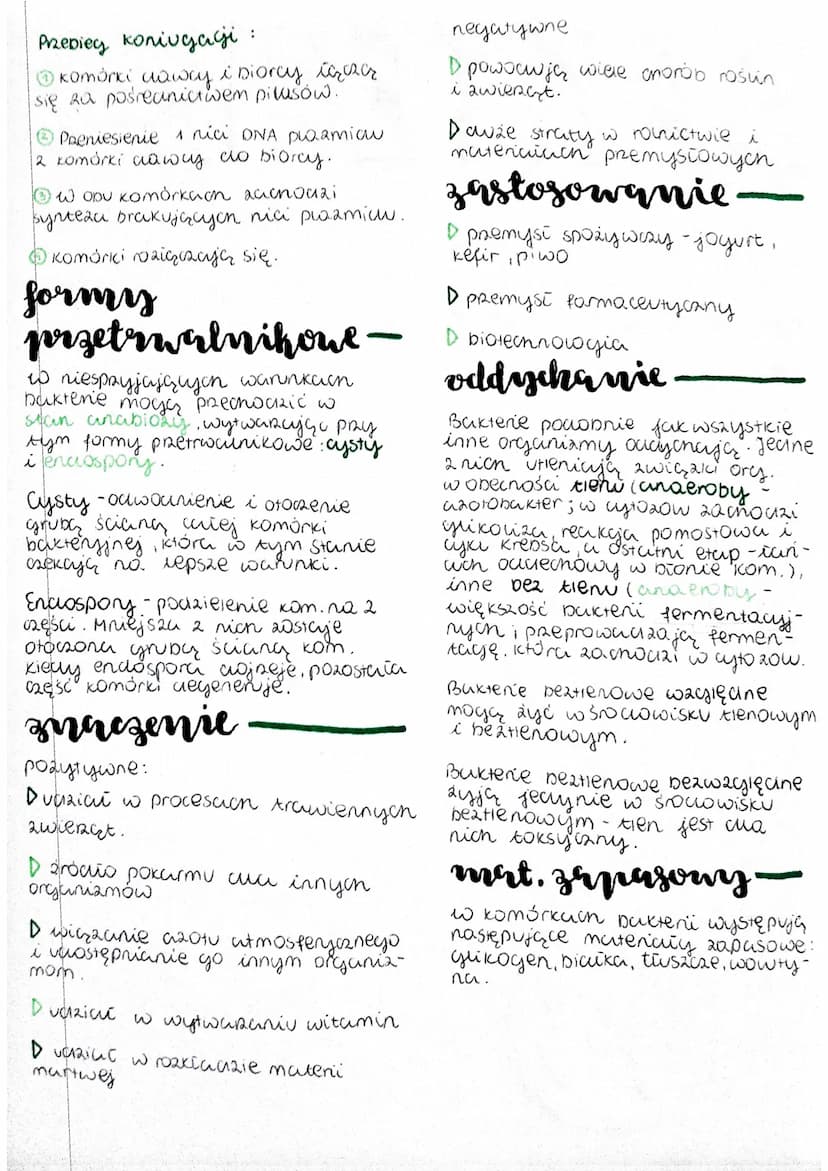 Przebieg koniugacji :
① komórki dawcy i biorcy łączą
się za pośrednictwem pilusów.
② Przeniesienie 1 nici DNA plazmidu
z komórki dawcy do biorcy.
③ w obu komórkach zachodzi
synteza brakujących nici plazmidu.
④ komórki rozłączają się.
formy
przetrwalnikowe
W niesprzyjających warunkach
bakterie mogą przechodzić w
stan anabiozy, wytwarzając przy
tym formy przetrwalnikowe: cysty
i endospory.
Cysty - odwodnienie i otoczenie
grubą ścianą całej komórki
bakteryjnej, która w tym stanie
czekają na lepsze warunki.
Endospory - podzielenie kom. na 2
części. Mniejsza z nich zostaje
otoczona grubą ścianą kom.
Kiedy endospora dojrzeje, pozostała
część komórki degeneruje.
znaczenie
pozytywne:
▷ udział w procesach trawiennych
zwierząt.
▷ źródło pokarmu dla innych
organizmów
▷ wiązanie azotu atmosferycznego
i udostępnianie go innym organiz-
mom.
▷ udział w wytwarzaniu witamin
▷ udział w rozkładzie materii
martwej
negatywne
▷ powodują wiele chorób roślin
i zwierząt.
▷ duże straty w rolnictwie i
materiałach przemysłowych
zastosowanie
▷ przemysł spożywczy - jogurt,
kefir, piwo
▷ przemysł farmaceutyczny
▷ biotechnologia
oddychanie
Bakterie podobnie jak wszystkie
inne organizmy oddychają. Jedne
z nich utleniają związki org.
w obecności tlenu (anaeroby -
azotobakter; w cytozolu zachodzi
glikoliza, reakcja pomostowa i
cykl Krebsa, a ostatni etap - łań-
uch oddechowy w błonie kom.),
inne bez tlenu (anaeroby -
większość bakterii fermentacyj-
nych; przeprowadzają fermen-
tację, która zachodzi w cytozolu.
Bakterie beztlenowe względne
mogą żyć w środowisku tlenowym
i beztlenowym.
Bakterie beztlenowe bezwzględne
żyją jedynie w środowisku
beztlenowym - tlen jest dla
nich toksyczny.
mat. zapasowy
w komórkach bakterii występują
następujące materiały zapasowe:
glikogen, białka, tłuszcze, woluty-
na.